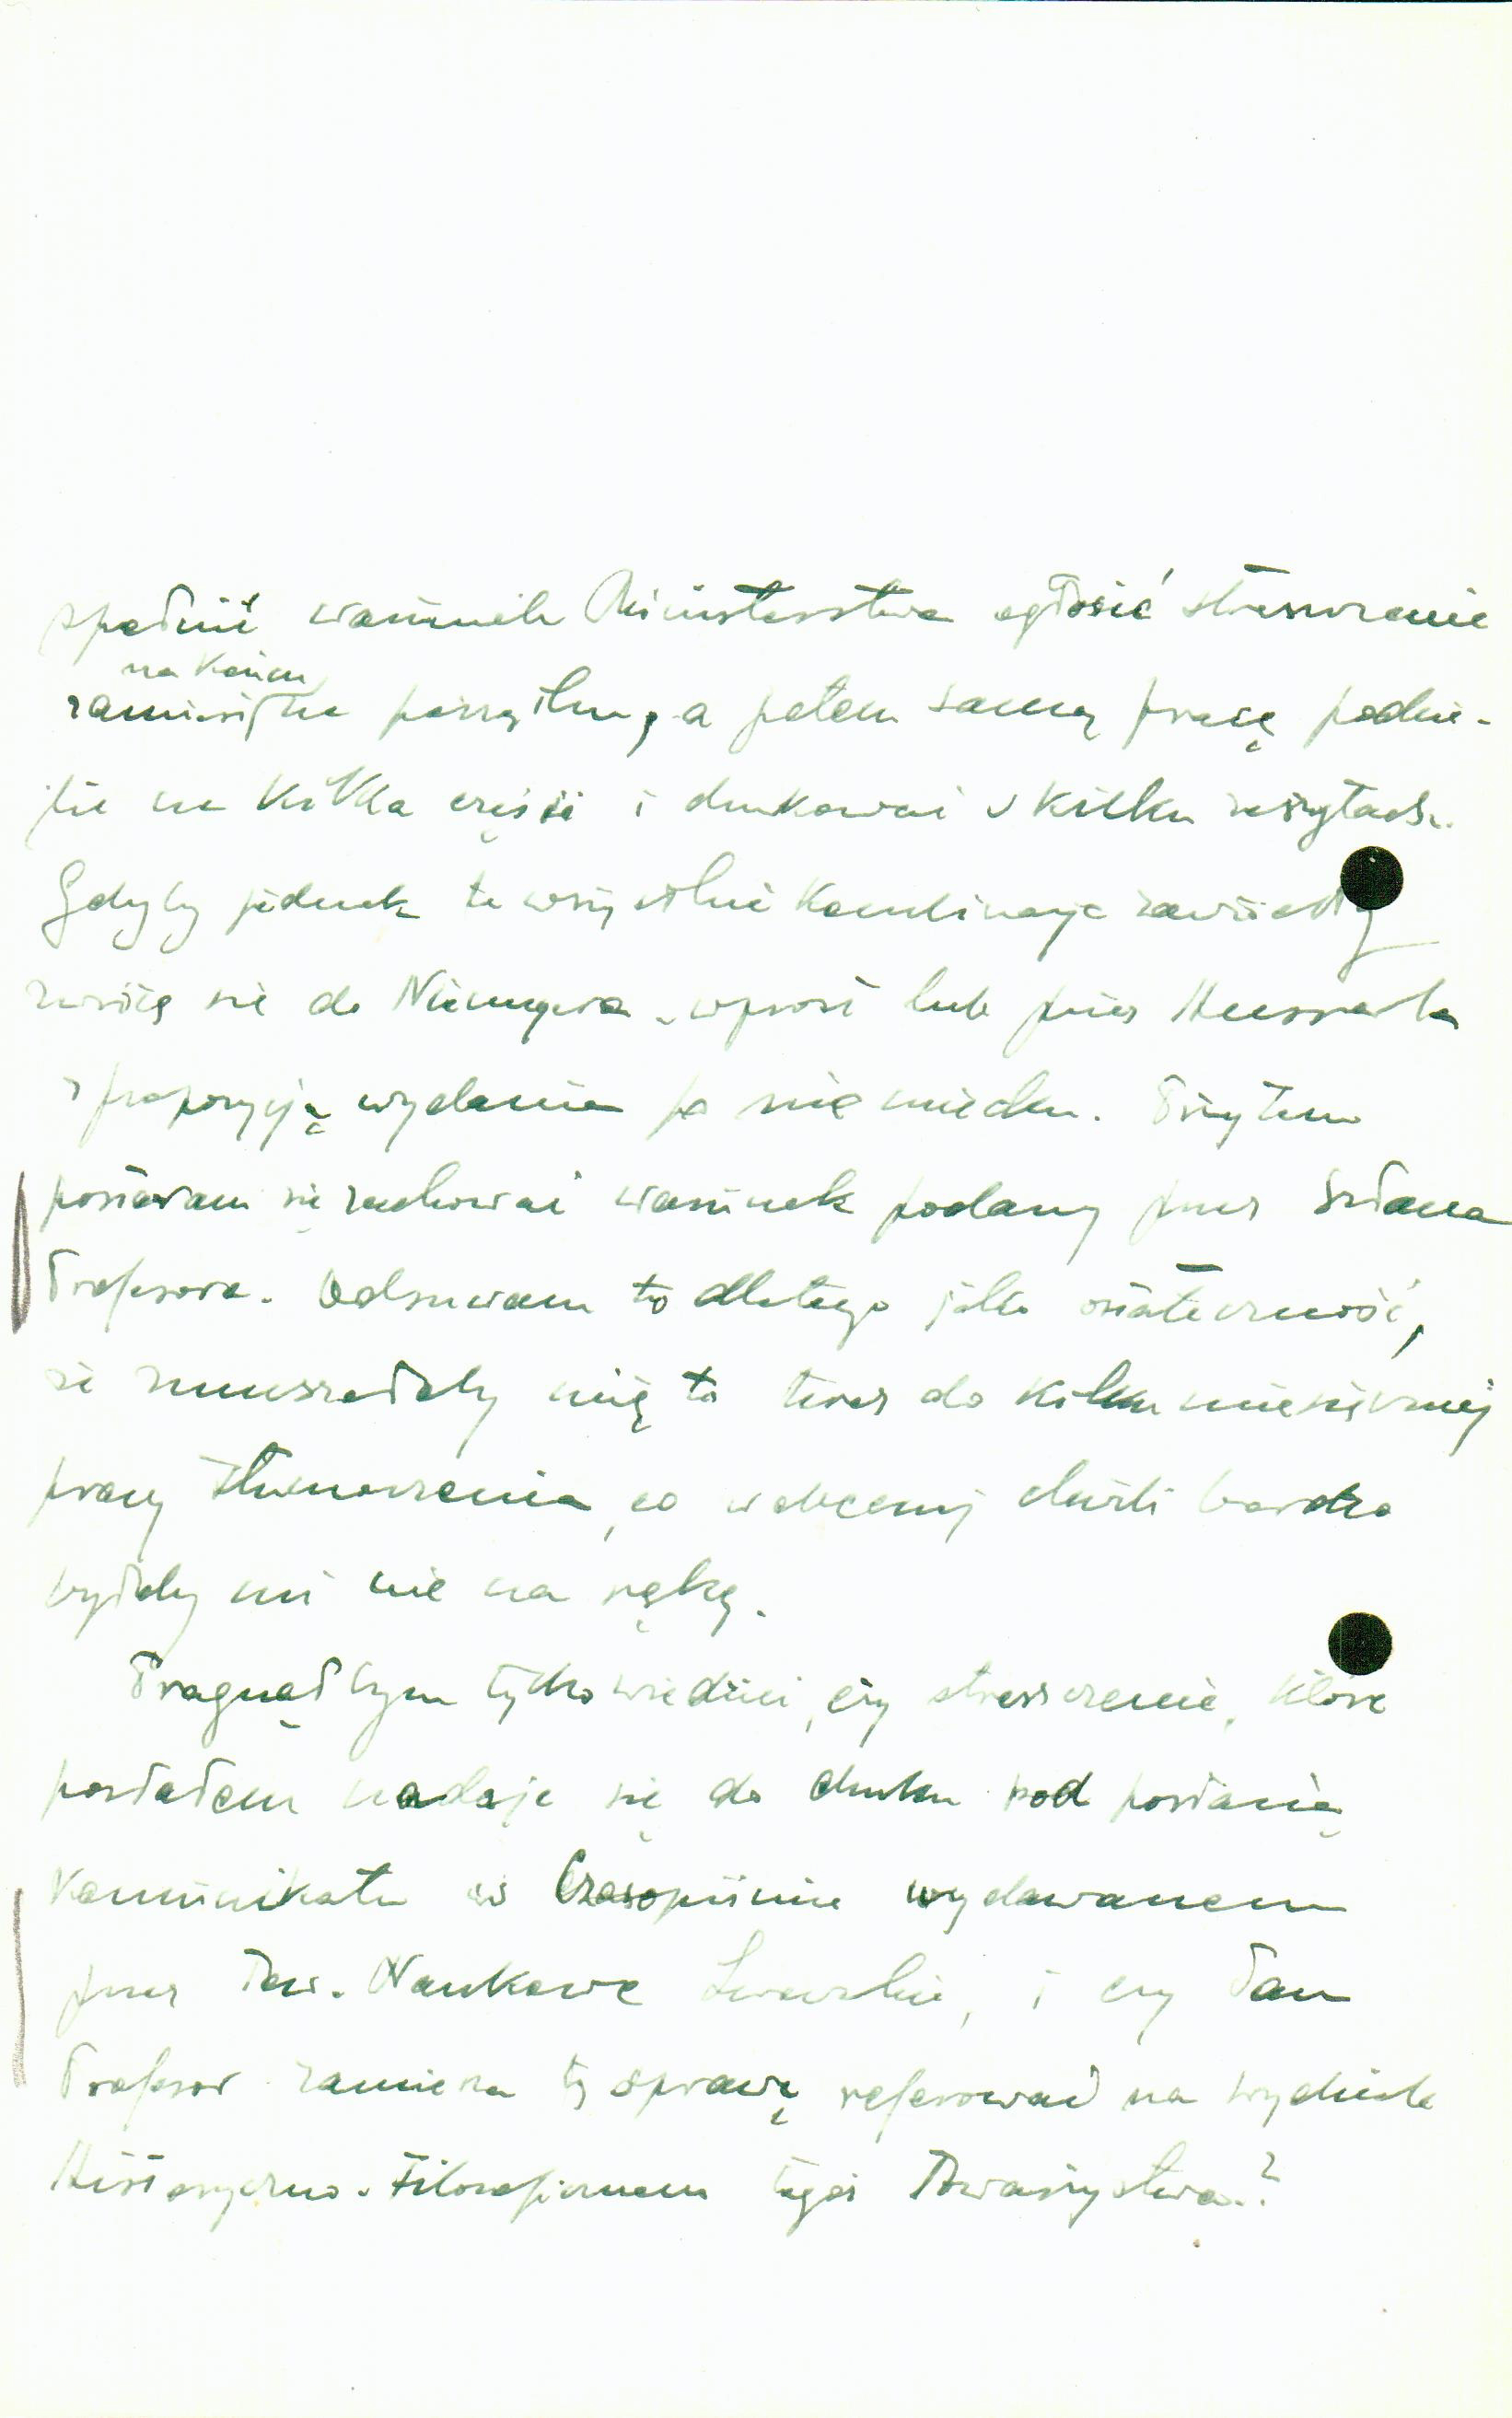 spełnić warunek Ministerstwa ogłosić streszczenie
na końcu
zamiast na początku, a potem samą pracę podzie-
lić na kilka części i drukować w kilku zeszytach.
Gdyby jednak te wszystkie kombinacje zawiodły
zwrócę się do Niemeyera wprost lub przez Husserla
z propozycją wydania po niemiecku. Przytem
postaram się zachować warunek podany przez Sz. Pana
Profesora. Odsuwam to dlatego jako ostateczność,
że zmuszałoby mię to teraz do kilkumiesięcznej
pracy tłumaczenia, co w obecnej chwili bardzo
byłoby mi nie na rękę.
Pragnąłbym tylko wiedzieć, czy streszczenie, które
posłałem nadaje się do druku pod postacią
Komunikatu w Czasopiśmie wydawanem
przez Tow. Naukowe Lwowskie, i czy Pan
Profesor zamierza tę sprawę referować na wydziale
Historyczno-Filozoficznem tegoż Towarzystwa?